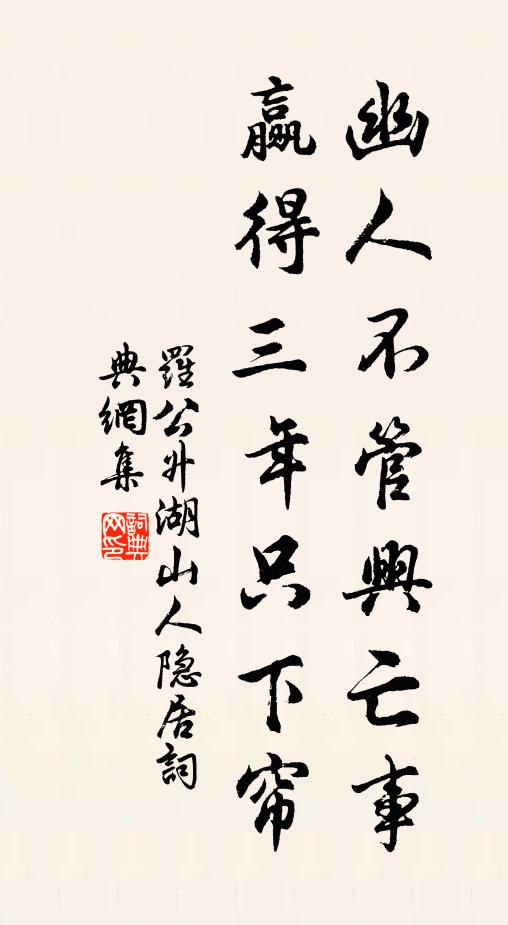 幽人不管興亡事
贏得三年只下帘
羅公升湖山人隐居詞
典網集
詞典
网印